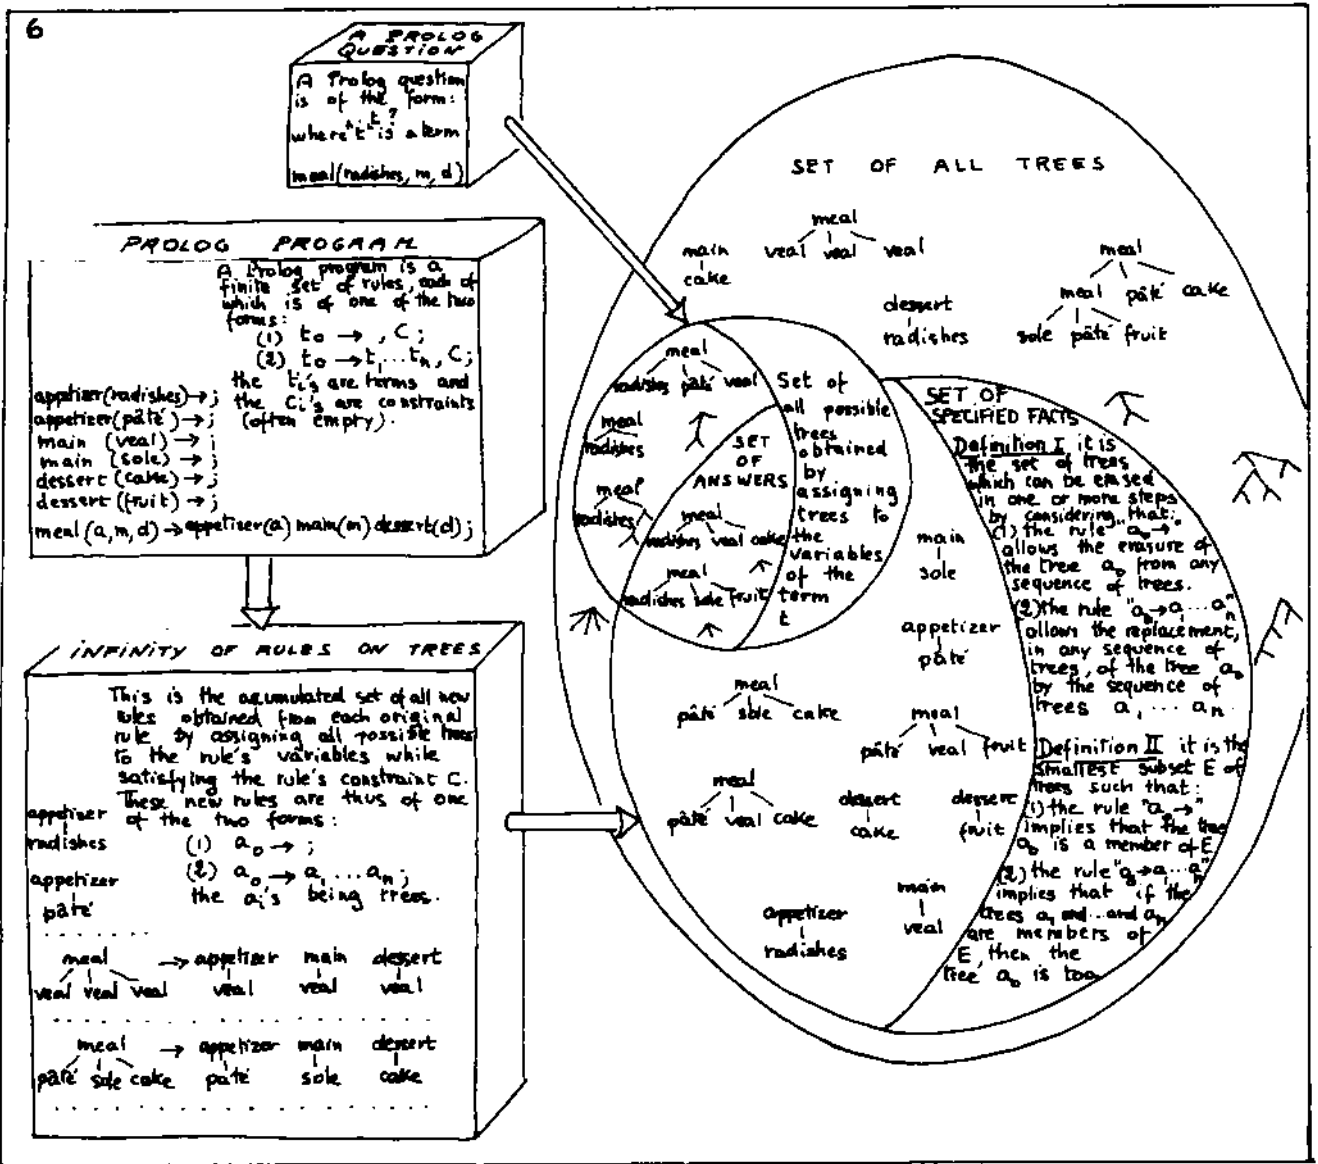 6
A PROLOG
QUESTION
A Prolog question
is of the form:
"t"?
where "t" is a term
meal(radishes, m, d)
PROLOG PROGRAM
A Prolog program is a
finite set of rules, each of
which is of one of the two
forms:
(1) t₀ → , C;
(2) t₀ → t₁...tₙ, C;
the tᵢ's are terms and
the Cᵢ's are constraints
(often empty).
appetizer(radishes) → ;
appetizer(pâté) → ;
main (veal) → ;
main (sole) → ;
dessert (cake) → ;
dessert (fruit) → ;
meal(a,m,d) → appetizer(a) main(m) dessert(d);
INFINITY OF RULES ON TREES
This is the acumulated set of all new
rules obtained from each original
rule by assigning all possible trees
to the rule's variables while
satisfying the rule's constraint C.
These new rules are thus of one
of the two forms:
(1) a₀ → ;
(2) a₀ → a₁...aₙ;
the aᵢ's being trees.
appetizer
radishes
appetizer
pâté
. . . . . . . . .
meal → appetizer main dessert
veal veal veal veal veal veal
. . . . . . . . .
meal → appetizer main dessert
pâté sole cake pâté sole cake
. . . . . . . . .
SET OF ALL TREES
meal
veal veal veal
main
cake
meal
meal pâté cake
sole pâté fruit
dessert
radishes
meal
radishes pâté veal
meal
radishes
meal
radishes
SET
OF
ANSWERS
meal
radishes veal cake
meal
radishes sole fruit
Set of
all possible
trees
obtained
by
assigning
trees to
the
variables
of the
term
t
SET OF
SPECIFIED FACTS
Definition I it is
the set of trees
which can be erased
in one or more steps
by considering that:
(1) the rule "a₀→"
allows the erasure of
the tree a₀ from any
sequence of trees.
(2) the rule "a₀→a₁...aₙ"
allows the replacement,
in any sequence of
trees, of the tree a₀
by the sequence of
trees a₁ ... aₙ.
Definition II it is the
smallest subset E of
trees such that:
(1) the rule "a₀→"
implies that the tree
a₀ is a member of E.
(2) the rule "a₀→a₁...aₙ"
implies that if the
trees a₁ and...and aₙ
are members of
E, then the
tree a₀ is too.
main
sole
appetizer
pâté
meal
pâté sole cake
meal
pâté veal fruit
meal
pâté veal cake
dessert
cake
dessert
fruit
main
veal
appetizer
radishes